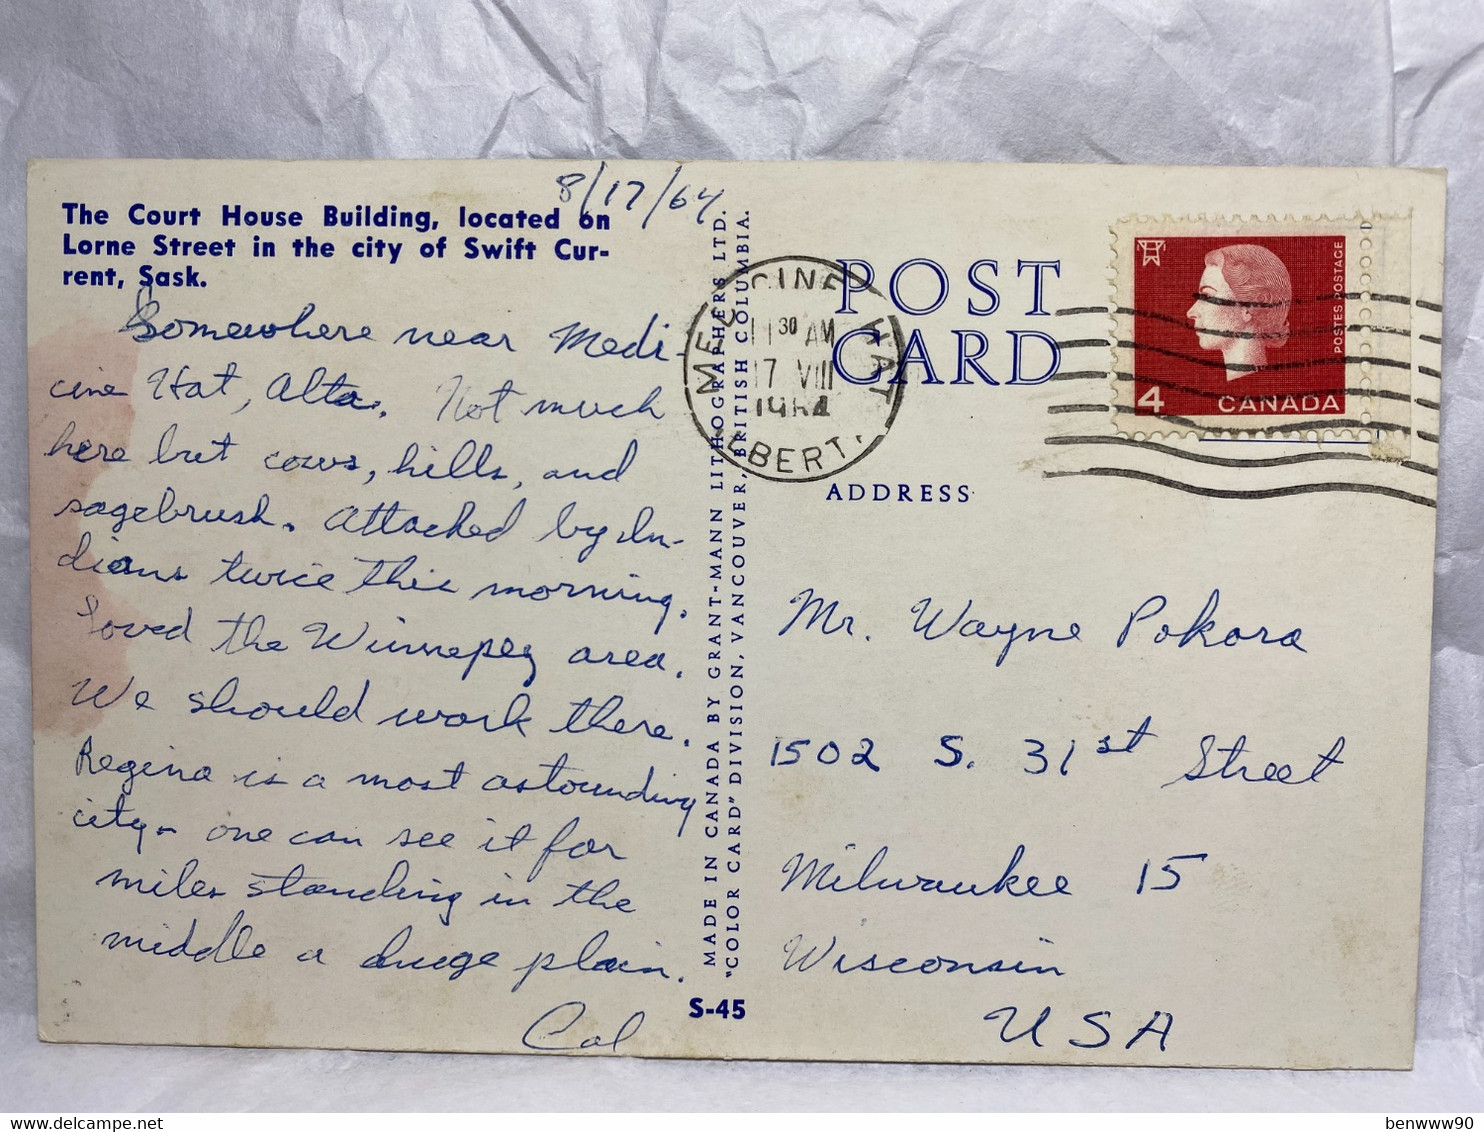 8/17/64
The Court House Building, located on
Lorne Street in the city of Swift Cur-
rent, Sask.
Somewhere near Medi-
cine Hat, Alta. Not much
here but cows, hills, and
sagebrush. Attacked by In-
dians twice this morning.
Loved the Winnepeg area.
We should work there.
Regina is a most astounding
city. one can see it for
miles standing in the
middle a huge plain.
Cal
S-45
MADE IN CANADA BY GRANT-MANN LITHOGRAPHERS LTD.
"COLOR CARD" DIVISION, VANCOUVER, BRITISH COLUMBIA.
POST
CARD
ADDRESS
MEDICINE HAT
11 30 AM
17 VIII
1964
ALBERT.
POSTES POSTAGE
4 CANADA
Mr. Wayne Pokora
1502 S. 31st Street
Milwaukee 15
Wisconsin
USA
benwww90